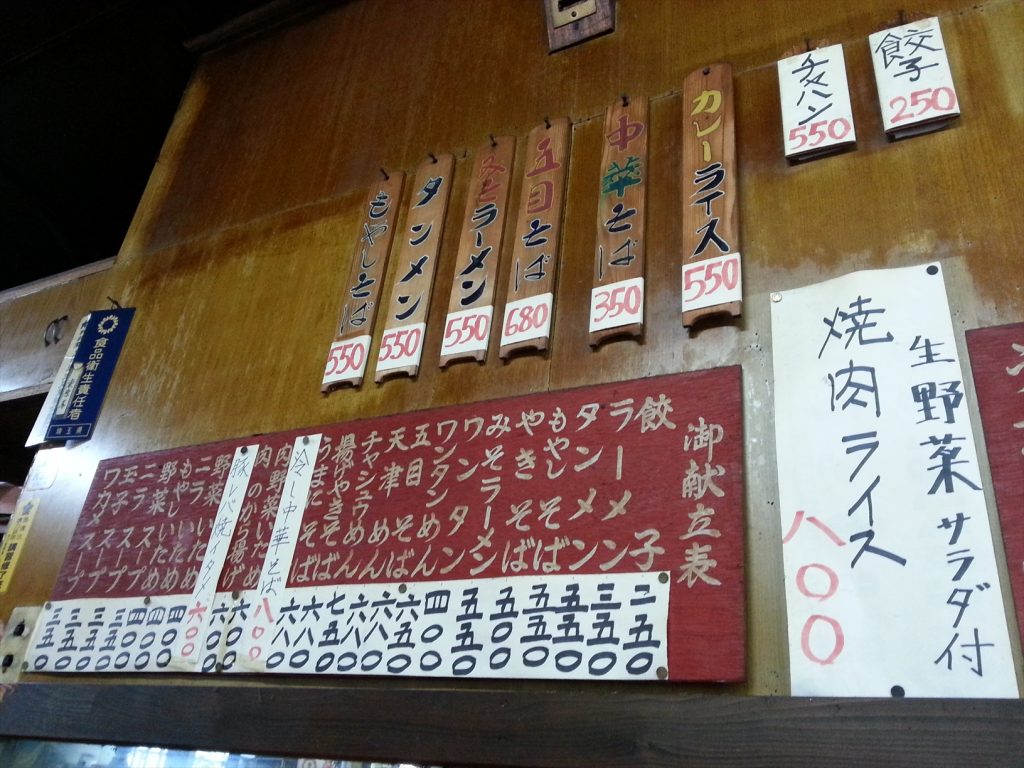 餃子
250
チャハン
550
カレーライス
550
中華そば
350
五目そば
680
みそラーメン
550
タンメン
550
もやしそば
550
生野菜サラダ付
焼肉ライス
八〇〇
御献立表
餃子
二五〇
ラーメン
三五〇
タンメン
五五〇
もやしそば
五五〇
やきそば
五〇〇
みそラーメン
五五〇
ワンタン
四〇〇
ワンタンめん
五目そば
天津めん
チャシュウめん
揚げやきそば
うまにそば
冷し中華そば
八〇〇
肉野菜いため
肉のから揚げ
豚レバ焼イタメ
六〇〇
野菜いため
ニラいため
もやしいため
野菜スープ
ニラスープ
玉子スープ
ワカメスープ
三五〇
食品衛生責任者
埼玉県